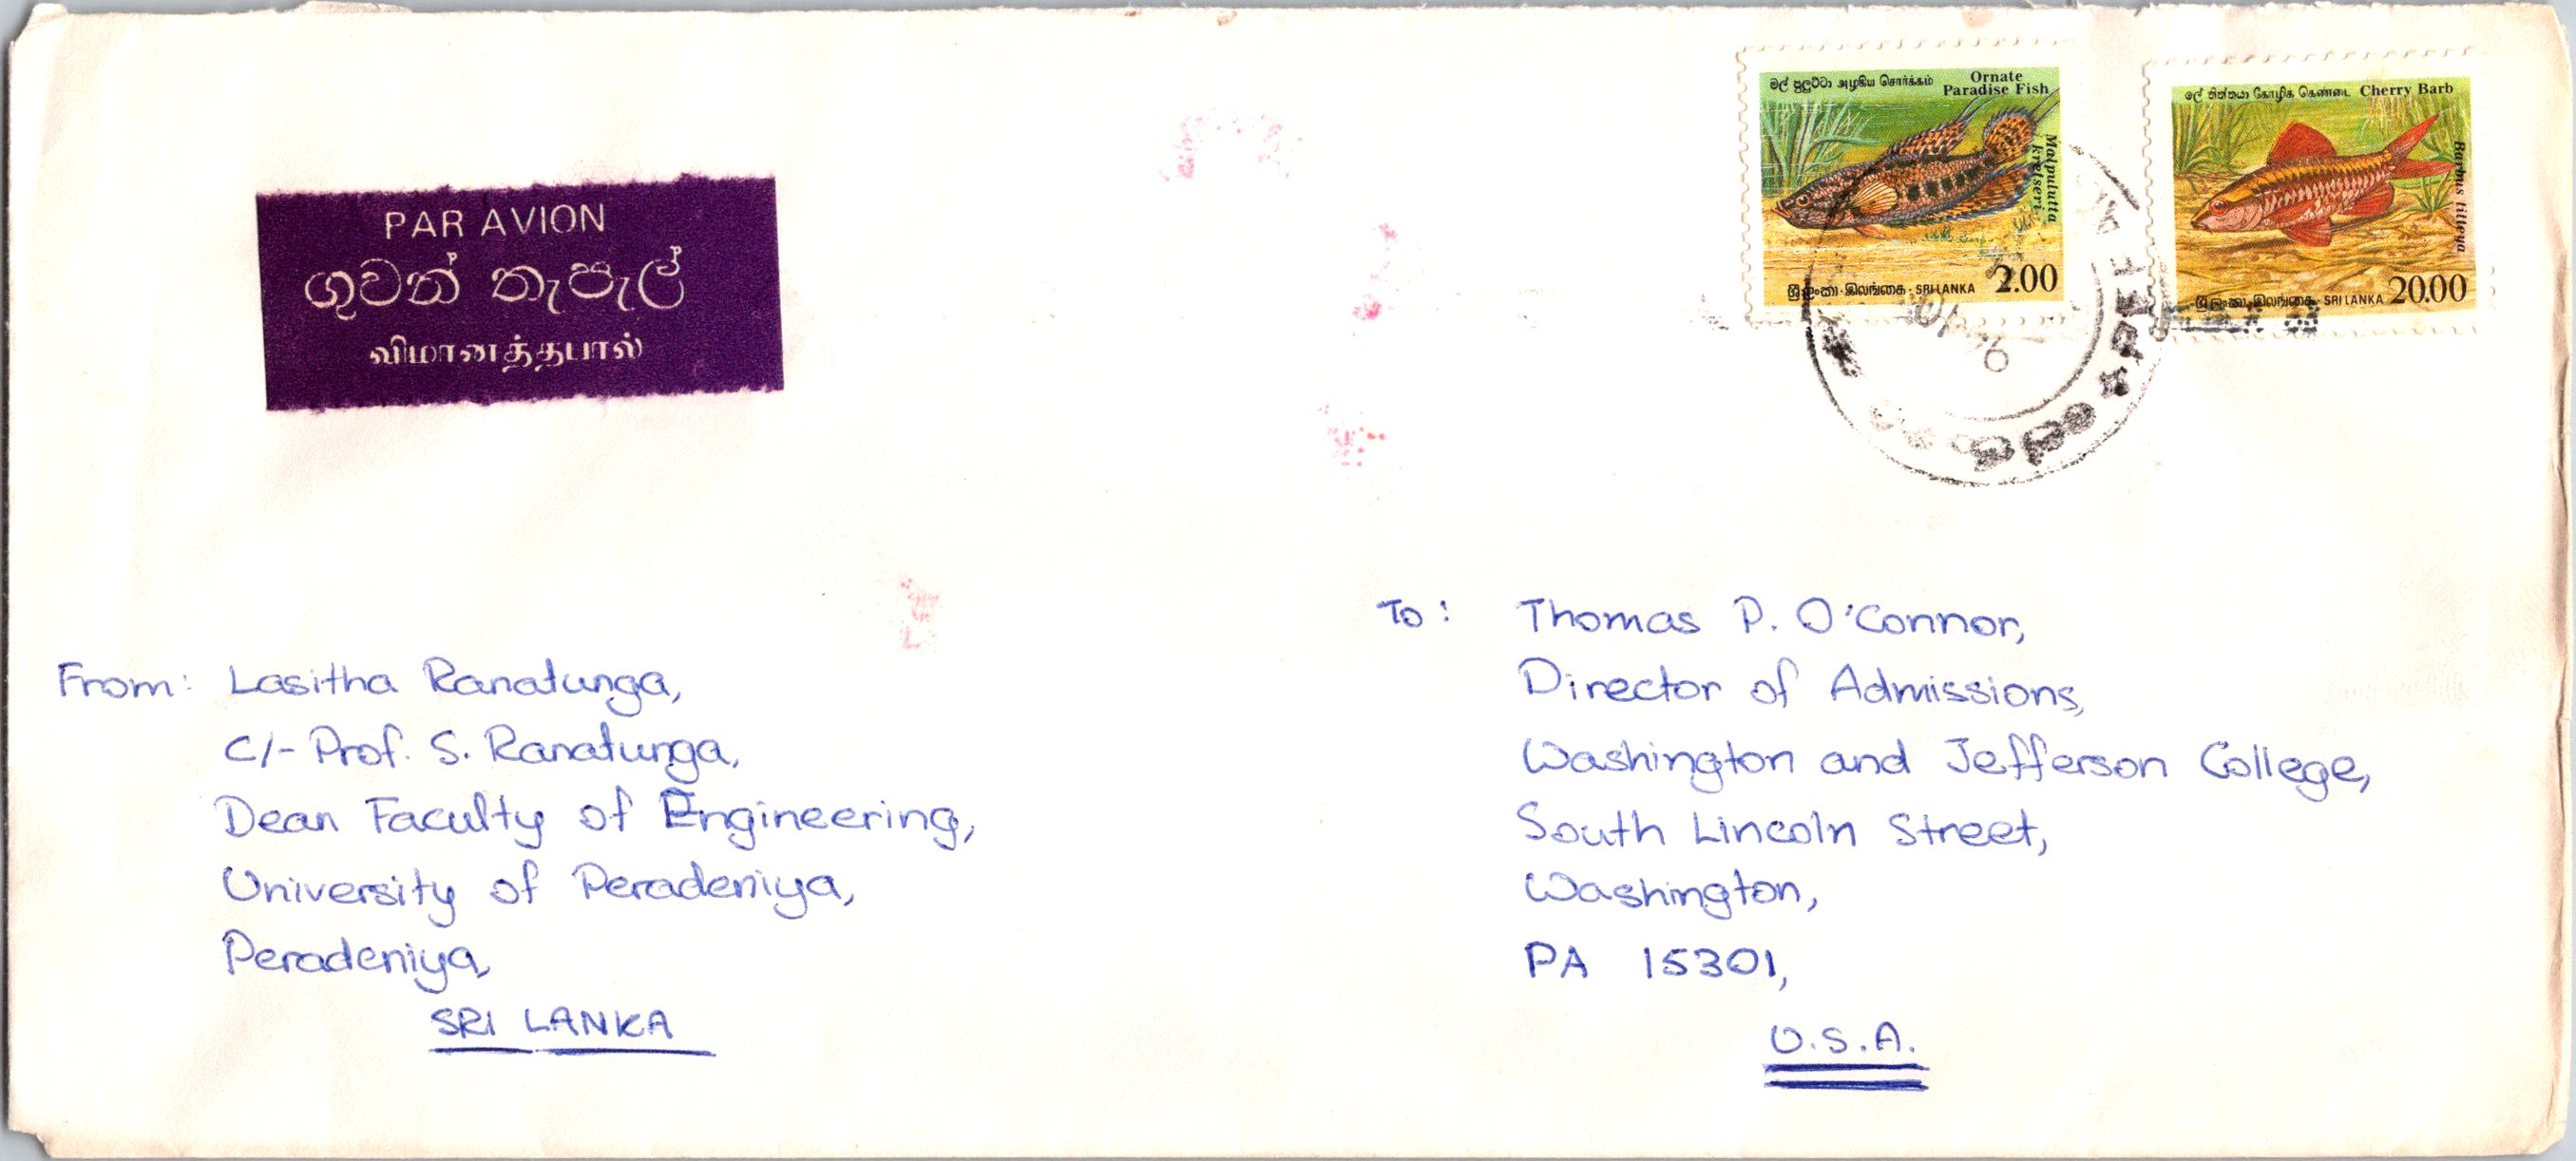 PAR AVION
ගුවන් තැපැල්
விமானத்தபால்
මල් පුලුට්ටා அழகிய சொர்க்கம் Ornate
Paradise Fish
Malpulutta
kretseri
ශ්‍රී ලංකා · இலங்கை · SRI LANKA 2.00
ලේ තිත්තයා கோழிக் கெண்டை Cherry Barb
Barbus titteya
ශ්‍රී ලංකා · இலங்கை · SRI LANKA 20.00
From: Lasitha Ranatunga,
C/- Prof. S. Ranatunga,
Dean Faculty of Engineering,
University of Peradeniya,
Peradeniya,
SRI LANKA
To: Thomas P. O'Connor,
Director of Admissions,
Washington and Jefferson College,
South Lincoln Street,
Washington,
PA 15301,
U.S.A.